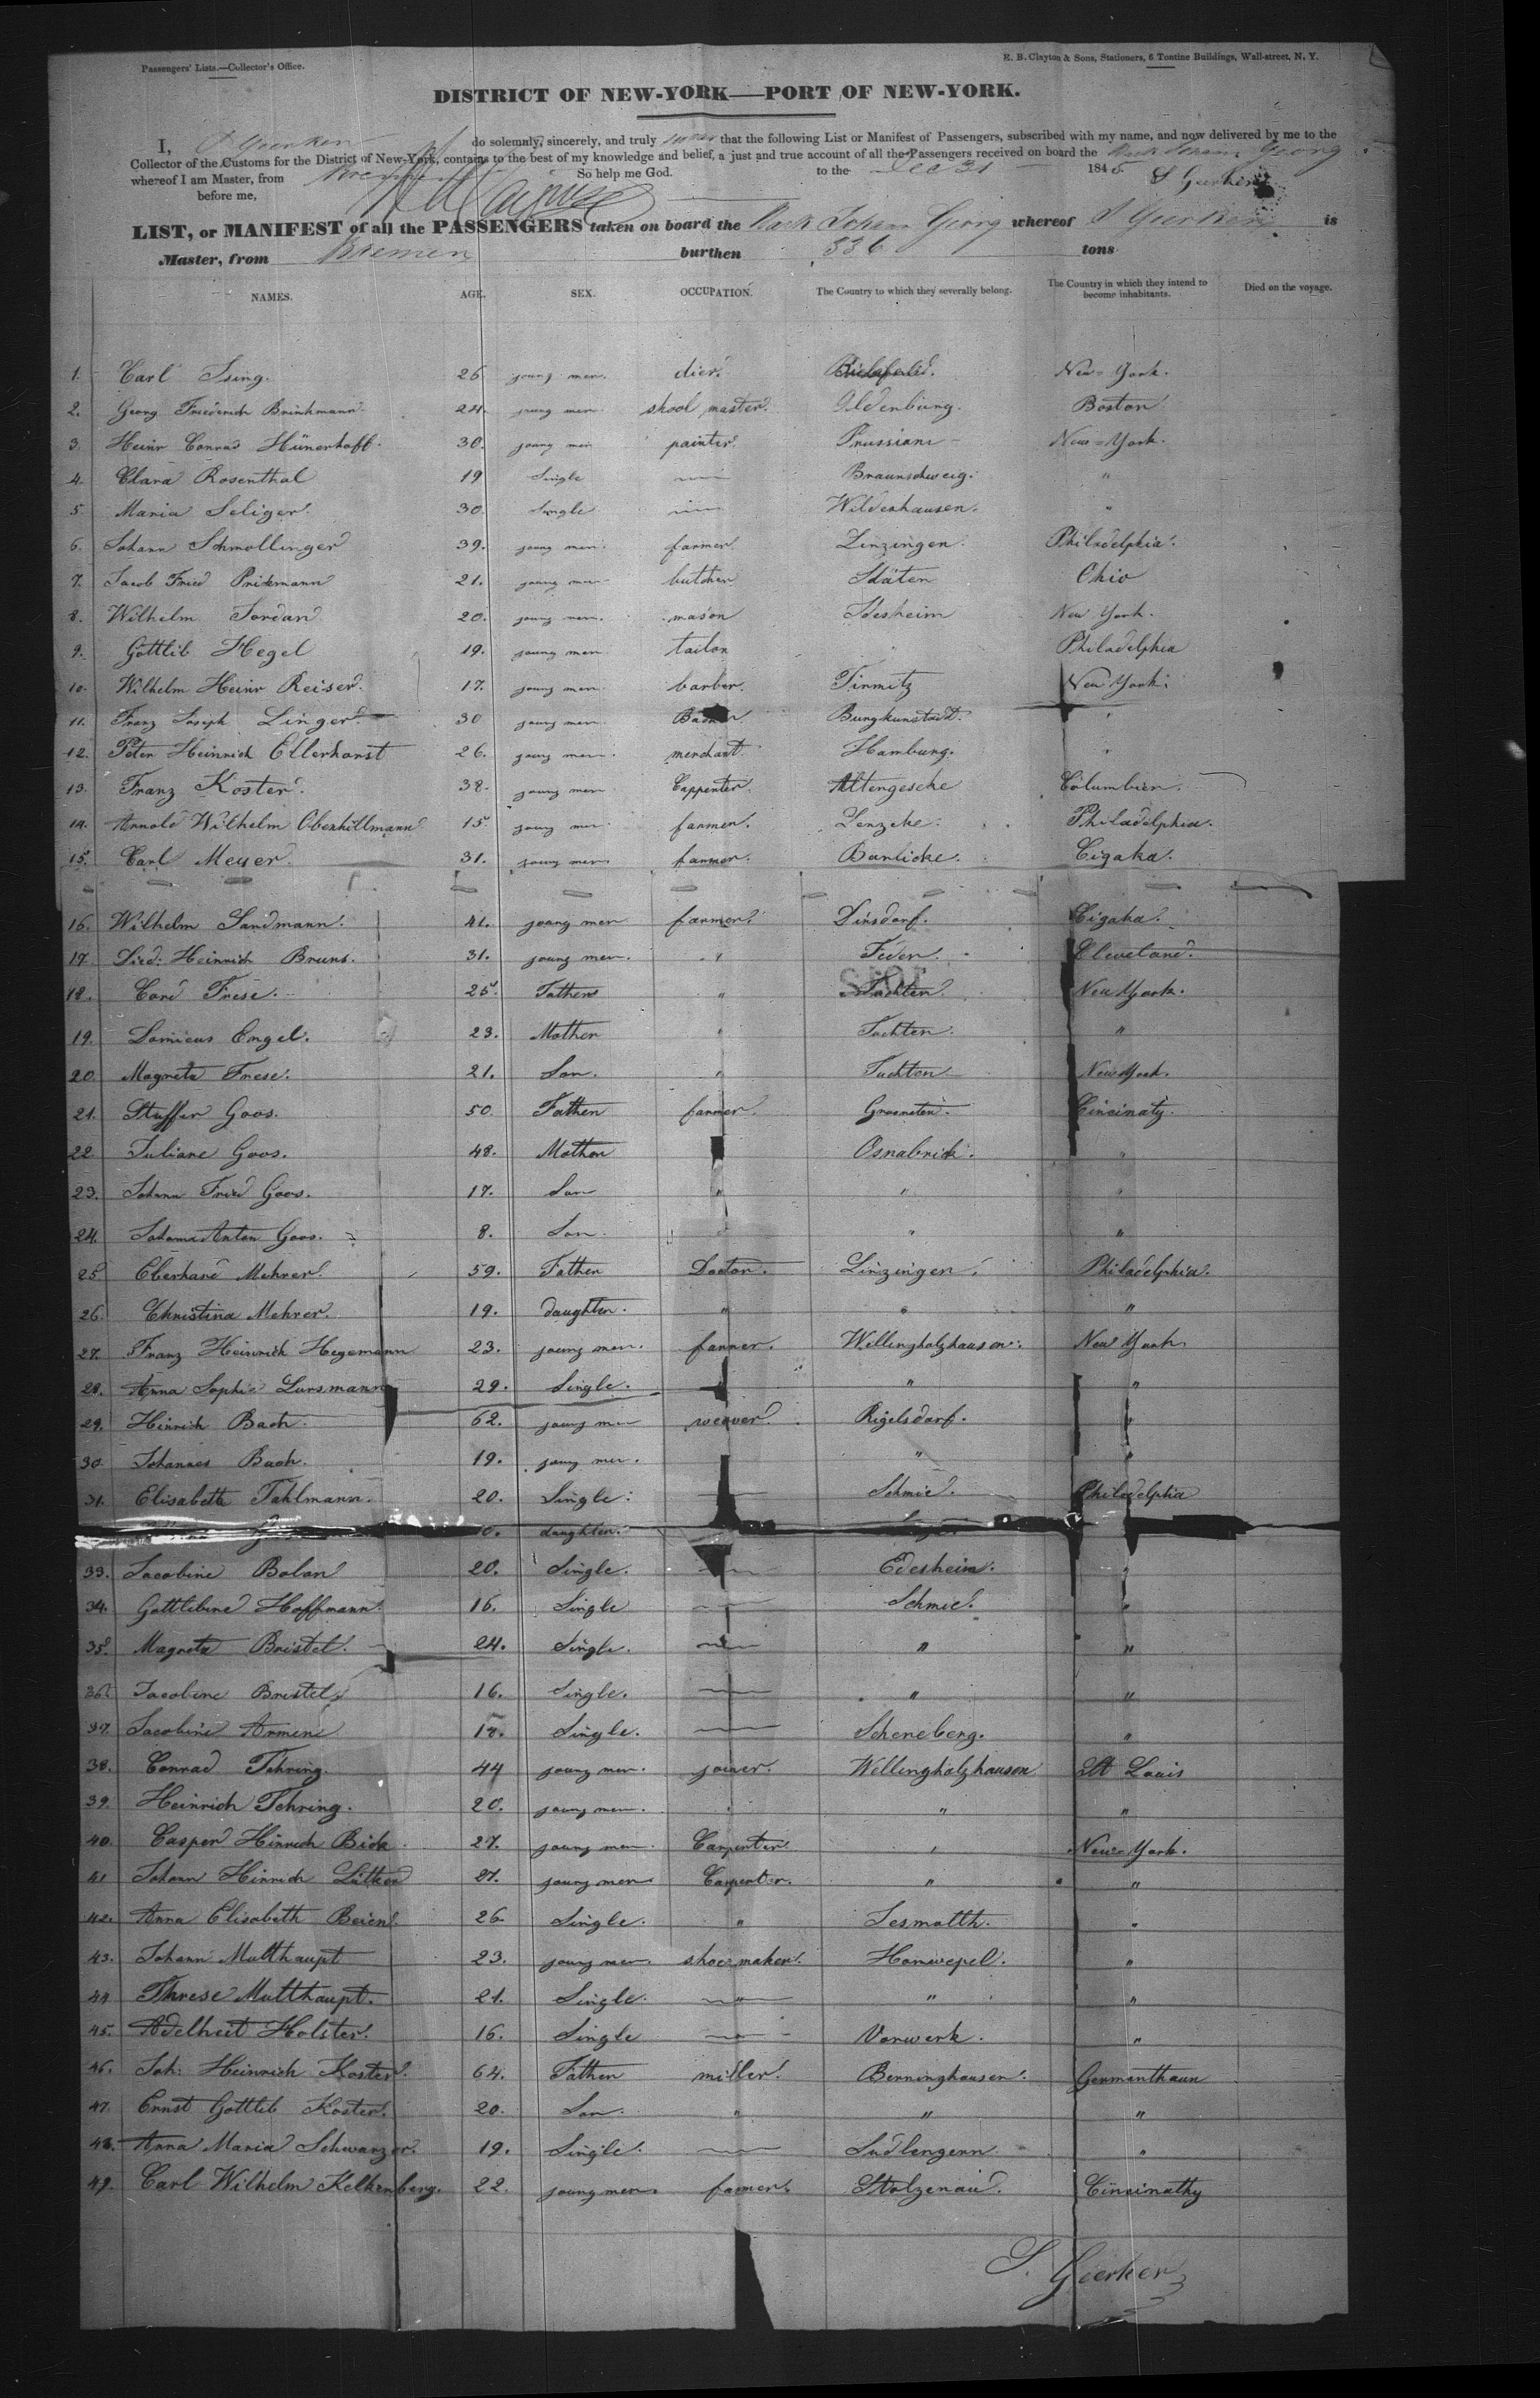 Passengers' Lists.—Collector's Office.
E. B. Clayton & Sons, Stationers, 6 Tontine Buildings, Wall-street, N. Y.
DISTRICT OF NEW-YORK—PORT OF NEW-YORK.
I, do solemnly, sincerely, and truly that the following List or Manifest of Passengers, subscribed with my name, and now delivered by me to the
Collector of the Customs for the District of New-York, contains to the best of my knowledge and belief, a just and true account of all the Passengers received on board the Bark Johann Georg
whereof I am Master, from Bremen So help me God. to the Dec 31 1845.
before me,
LIST, or MANIFEST of all the PASSENGERS taken on board the Bark Johann Georg whereof is
Master, from Bremen burthen 336 tons
NAMES. AGE. SEX. OCCUPATION. The Country to which they severally belong. The Country in which they intend to become inhabitants. Died on the voyage.
1. Carl Ising. 26 young men. dier. New-York.
2. Georg Friederich Brinkmann. 24. young men. skool master. Oldenburg. Boston
3. Heinr Conrad Hünerhoff. 30. young men painter. Prussian New-York.
4. Clara Rosenthal 19 Single Braunschweig. "
5. Maria Seliger. 30. Single Wildeshausen. "
6. Johann Schmollinger 39. young men. farmer. Linzingen. Philadelphia.
7. Jacob Fried Prikmann 21. young men butcher Ohio
8. Wilhelm Jordan 20. young men. mason Idesheim New York.
9. Gottlib Hegel 19. young men tailor " Philadelphia
10. Wilhelm Heinr Reiser. 17. young men. barber. Tirmitz New York.
11. Franz Joseph Linger. 30 young men. Burgkunstadt. "
12. Peter Heinrich Ellerhorst 26. young men. merchant Hamburg. "
13. Franz Koster. 38. young men Cappenter. Altengeseke Columbien.
14. Arnold Wilhelm Oberhillmann 15 young men. farmer. Lenzeke. Philadelphia.
15. Carl Meyer. 31. young men. farmer. Barlicke. Cigaka.
16. Wilhelm Sandmann. 41. young men farmer. Dinsdorf. Cigaka.
17. Died: Heinrich Bruns. 31. young men. " Feden. Cleveland.
18. Cord Frese. 25. Fathers " Tuchten. New York.
19. Engel. 23. Mother " Tuchten. "
20. Magreta Frese. 21. Son. " Tuchten New York.
21. Stuffer Goos. 50. Father farmer. Cincinaty.
22. Juliane Goos. 48. Mother Osnabrick. "
23. Johann Fried Goos. 17. Son " " "
24. Johann Anton Goos. 8. Son. " " "
25. Eberhard Mehrer. 59. Father Doctor. Linzingen. Philadelphia.
26. Christina Mehrer. 19. daughter. " " "
27. Franz Heinrich Hegemann 23. young men. farmer. Wellingholzhausen. New York
28. Anna Sophie Lursmann 29. Single. " "
29. Hinrich Bach. 62. young men weaver. Rigelsdorf. "
30. Johannes Bach. 19. young men. " "
31. Elisabeth Tahlmann. 20. Single. Schmie. Philadelphia
daughter.
33. Jacobine Bolan 20. Single. Edesheim. "
34. Gottlibine Hoffmann. 16. Single Schmie. "
35. Magreta Bristel. 24. Single. " "
36. Jacobine Bristel. 16. Single. " "
37. Jacobine Armine Single. Scheneberg. "
38. Conrad Tehring. 44 young men. joiner. Wellingholzhausen St Louis
39. Heinrich Tehring. 20. young men. " " "
40. Casper Hinrich Bick. 27. young men Carpenter. " New-York.
41. Johann Hinrich Lütken 27. young men. Carpenter. " "
42. Anna Elisabeth Beien. 26 Single. " Lesmatth. "
43. Johann Multhaupt 23. young men. shoemaker. Homwepel. "
44. Threse Multhaupt. 21. Single. " " "
45. Adelheit Holster. 16. Single Vorwerk. "
46. Joh: Heinrich Koster. 64. Father miller. Berninghausen. Germanthaun
47. Ernst Gottlib Koster. 20. Son. " " "
48. Anna Maria Schwarzer. 19. Single. Sudlengern "
49. Carl Wilhelm Kelkenberg. 22. young men. farmer. Stolzenau. Cincinathy